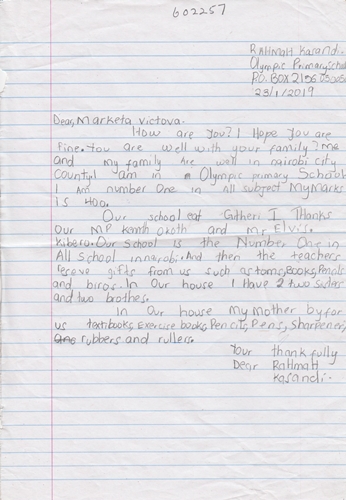 602257
Rahmah Kasandi.
Olympic Primary School
P.O. BOX 2156
23/1/2019
Dear, Marketa Victova.
How are you? I Hope you are
Fine. You are well with your family? me
and my family Are well in nairobi city
County I am in a Olympic primary School
I Am number One in All subject My Marks
is 400.
Our school eat Gutheri I Thanks
Our M.P kenth Okoth and Mr Elvis.
kibera. Our School is the Number One in
All School in nairobi. And then the teachers
reseve gifts from us such as toms, Books, Pencils
and biros. In Our house I Have 2 two Sisters
and two brothes.
In Our house my Mother by for
us textbooks, Exercise books, Pencils, Pens, Sharpener,
rubbers and rullers.
Your thank fully
Dear Rahmah
Kasandi.